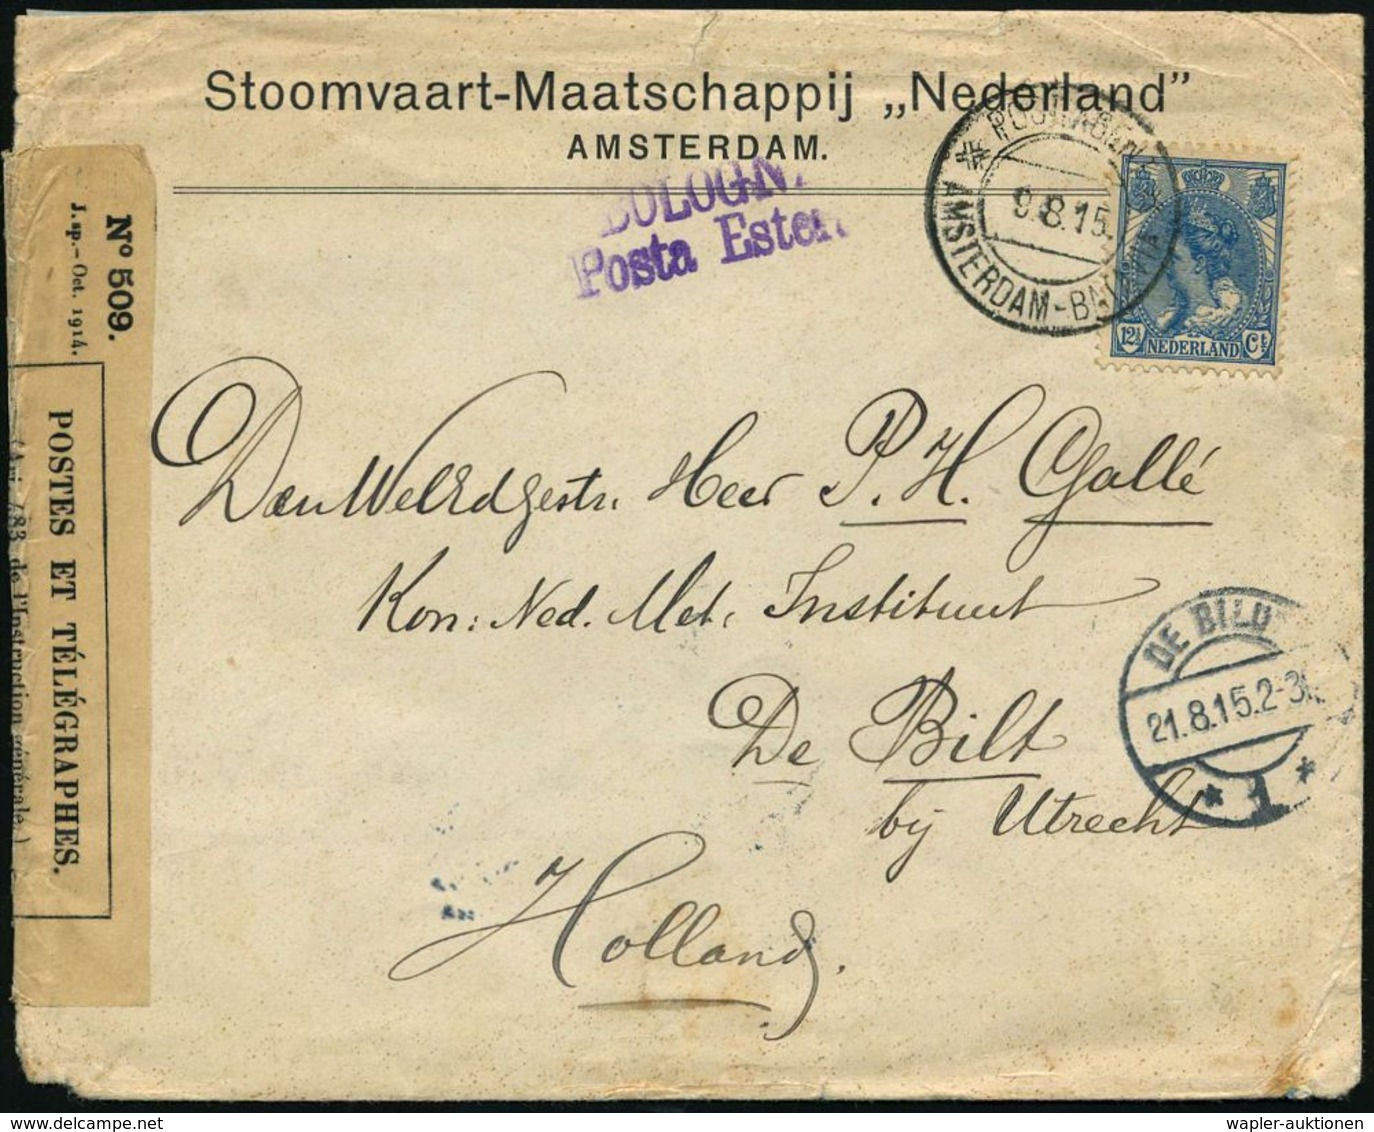 Stoomvaart-Maatschappij „Nederland”
AMSTERDAM.
BOLOGN
Posta Ester
AMSTERDAM-BATAVIA
9.8.15.
12½ NEDERLAND Ct
Nº 509.
J. np.-Oct. 1914.
POSTES ET TÉLÉGRAPHES.
483 de l'Instruction générale.)
Den WelEdgestr. Heer P. H. Gallé
Kon: Ned. Met. Instituut
De Bilt
bij Utrecht
Holland.
DE BILD
21.8.15.2-3
1
wapler-auktionen